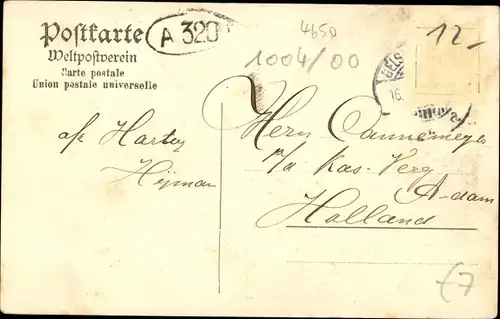 Postkarte
Weltpostverein
Carte postale
Union postale universelle
A 320
4650
1004/00
12-
GELS
16.
afz Hartog
Hijman
Hern Cannemeyer
p/a Kas-Verg
A-dam
Holland
(7